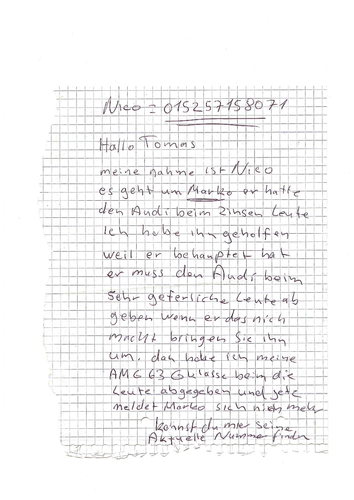 Nico = 015257158071
Hallo Tomas
meine nahme ist Nico
es geht um Marko er hatte
den Audi beim Zinsen Leute
Ich habe ihn geholfen
weil er behauptet hat
er muss den Audi beim
Sehr geferliche Leute ab
geben wenn er das nich
macht bringen Sie ihn
um. dan habe ich meine
AMG 63 G Klasse beim die
Leute abgegeben und jetz
meldet Marko sich nich mehr
konnst du mir seine
Aktuelle Nummer finden